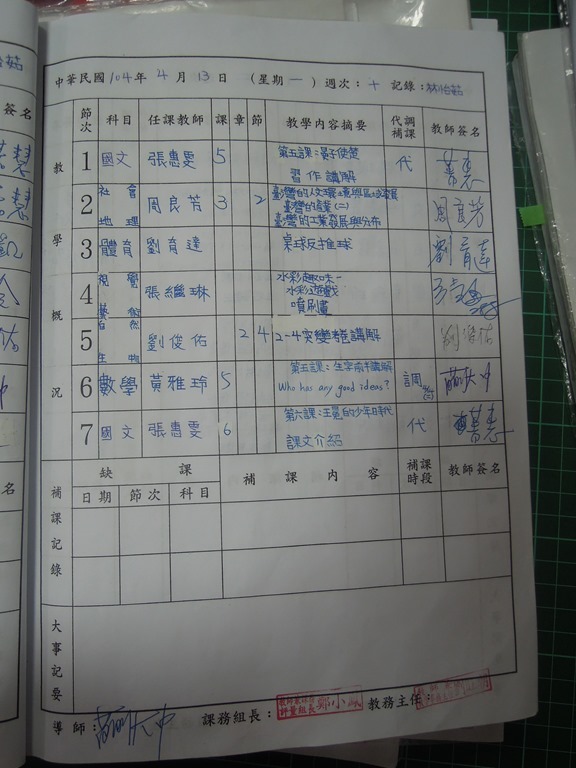 中華民國 104 年 4 月 13 日 （星期 一 ）週次： 十 記錄：林怡茹
教學概況
節次 科目 任課教師 課 章 節 教學內容摘要 代調補課 教師簽名
1 國文 張惠雯 5 第五課：晏子使楚 代
習作講解
2 社會 地理 周良芳 3 2 臺灣的人文環境與區域發展 周良芳
臺灣的產業(二)
臺灣的工業發展與分布
3 體育 劉育達 桌球反推球 劉育達
4 視覺 藝術 張繼琳 水彩趣味一
水彩遊戲
噴刷畫
5 自然 生物 劉俊佑 2 4 2-4突變考卷講解 劉俊佑
6 數學 黃雅玲 5 第五課：生字 調
Who has any good ideas?
7 國文 張惠雯 6 第六課：王冕的少年時代 代
課文介紹
補課記錄
缺課 補課內容 補課時段 教師簽名
日期 節次 科目
大事記要
導師： 課務組長： 教務主任：